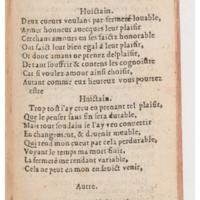 Huictain.
Deux cueurs voulans par fermeté louable,
Aymer honneur auecques leur plaisir
Cerchant amours en ses faictz honorable
Ont faict leur bien egal à leur plaisir,
Or donc amans ne prenez desplaisir,
De tant souffrir & contens les cognoistre
Car si voulez amour ainsi choisir,
Autant comme eux heureux vous pourrez
estre
Huictain.
Trop tost i'ay creu en prenant tel plaisir,
Que le penser sans fin sera durable,
Mais tout soudain ie l'ay veu conuertir
En changement, & deuenir muable,
Qui rend mon cueur par cela perdurable,
Voyant le temps ma mort suit,
La fermeté me rendant variable,
Cela ne peut en mon endroict venir,
Autre.